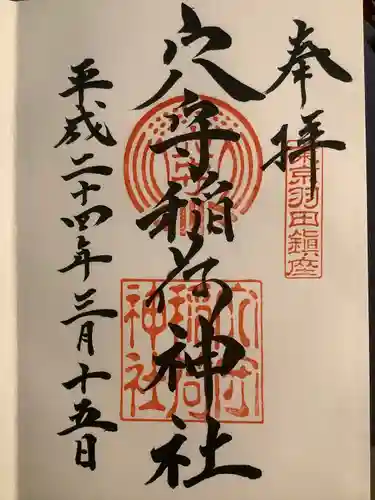 奉拝
東京羽田鎮座
穴守稲荷神社
穴守稲荷神社
平成二十四年三月十五日